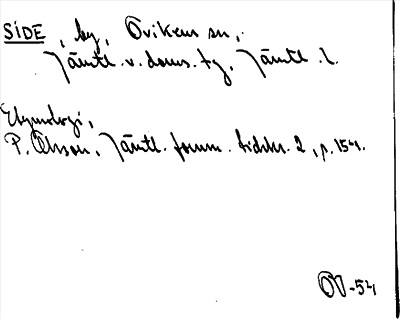 SIDE, by, Ovikens sn,
Jämtl. v. doms. tg, Jämtl. l.
Etymologi,
P. Olsson, Jämtl. fornm. tidskr. 2, p. 154.
OV-54